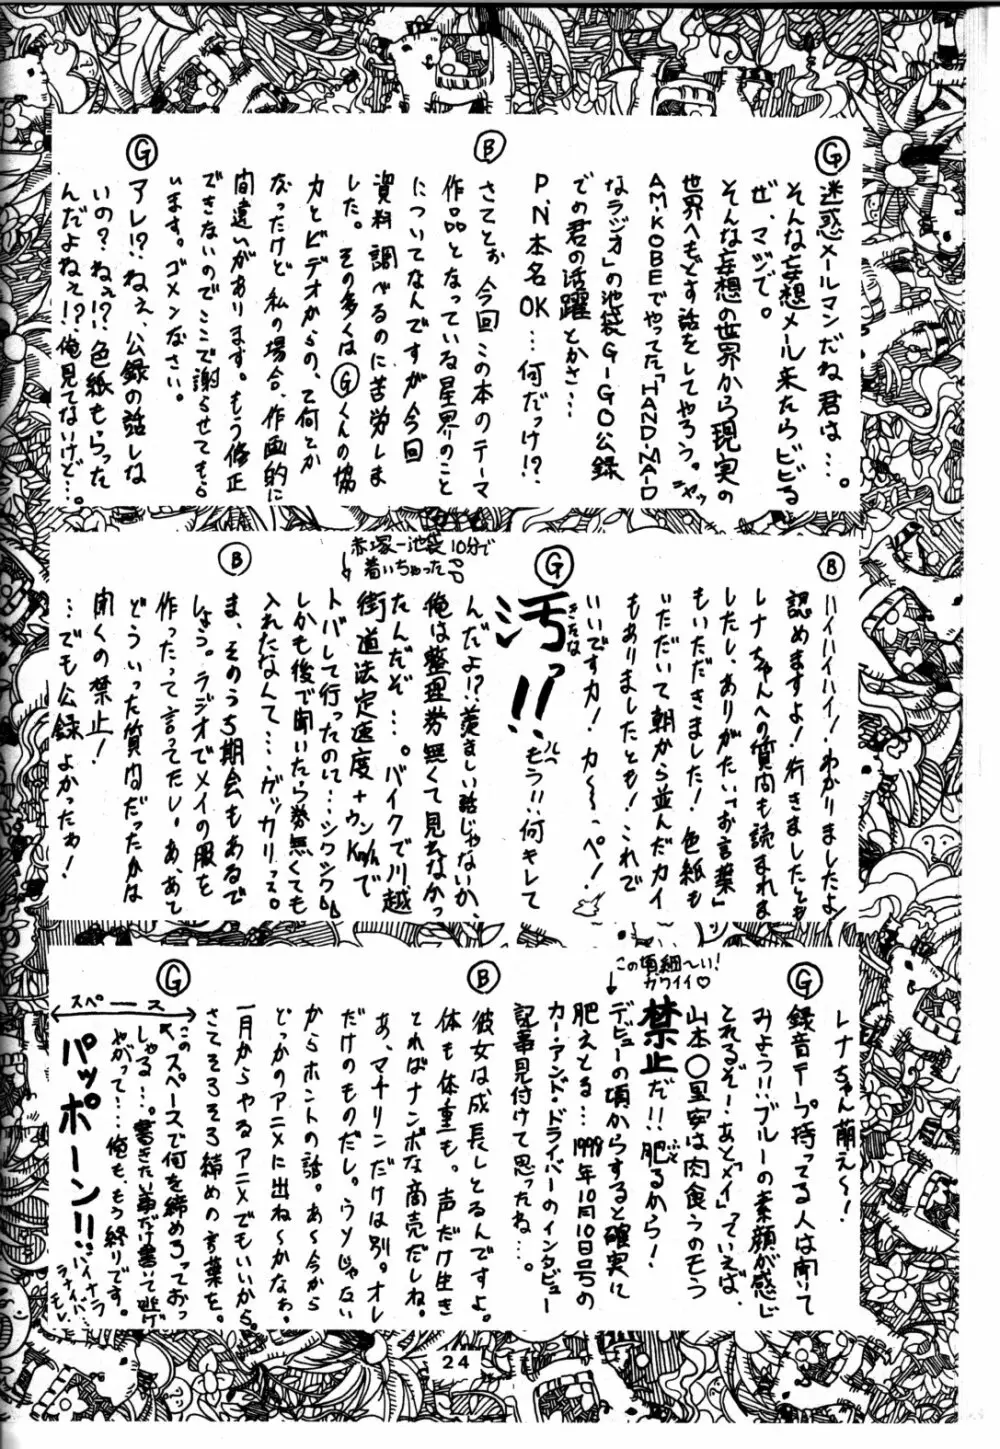 G
迷惑メールマンだね君は…。
そんな妄想メール来たらビビる
ぜ、マジで。
そんな妄想の世界から現実の
世界へもどす話をしてやろう。ニヤッ
AM・KOBEでやってた「HAND・MAID
なラジオ」の池袋G-GO公録
での君の活躍とかさ…
P.N本名OK…何だっけ!?
B
さてとぉ、今回この本のテーマ
作品となっている星界のこと
についてなんですが今回
資料調べるのに苦労しま
した。その多くはGくんの協
力とビデオからの、で何とか
なったけど私の場合、作画的に
間違いがあります。もう修正
できないのでここで謝らせてもら
います。ゴメンなさい。
G
アレ!?ねぇ、公録の話しな
いの?ねぇ!?色紙もらった
んだよねぇ!?俺見てないけど…。
B
ハイハイハイ!わかりましたよ!
認めますよ!行きましたとも
レナちゃんへの質問も読まれま
したし、ありがたい"お言葉"
もいただきました!色紙も
いただいて朝から並んだカイ
もありましたとも!これで
いいですカ!カ〜〜ッペ!
G
汚っ!!
きたな
もう!!何キレて
んだよ!?羨ましい話じゃないか、
俺は整理券無くて見れなかっ
たんだぞ…。バイクで川越
街道法定速度+ウンKm/hで
トバして行ったのに…シクシク
しかも後で聞いたら券無くても
入れたなんて…ガッカリっス。
赤塚-池袋10分で
着いちゃった
B
ま、そのうち期会もあるで
しょう。ラジオでメイの服を
作ったって言ってたし。あ、あと
どういった質問だったかは
聞くの禁止!
…でも公録よかったわ!
レナちゃん萌え〜!
G
録音テープ持ってる人は聞いて
みよう!!ブルーの素顔が感じ
とれるぞ!あと"メイ"っていえば、
山本〇里安は肉食うのもう
禁止だ!!肥るから!
デビューの頃からすると確実に
肥えとる…1998年10月10日号の
カー・アンド・ドライバーのインタビュー
記事見付けて思ったね…。
この頃細〜い!
カワイイ♡
B
彼女は成長しとるんですよ。
体も体重も。声だけ生き
てればナンボな商売だしね。
あ、マチリンだけは別。オレ
だけのものだし。ウソじゃない
からホントの話。あ〜今から
どっかのアニメに出ね〜かなぁ。
一月からやるアニメでもいいから。
さてそろそろ締めの言葉を。
G
スペース
このスペースで何を締めろっておっ
しゃる…。書きたい事だけ書いて逃げ
やがって…俺も、もう終りです。
パッポーン!!
バイナラ
24